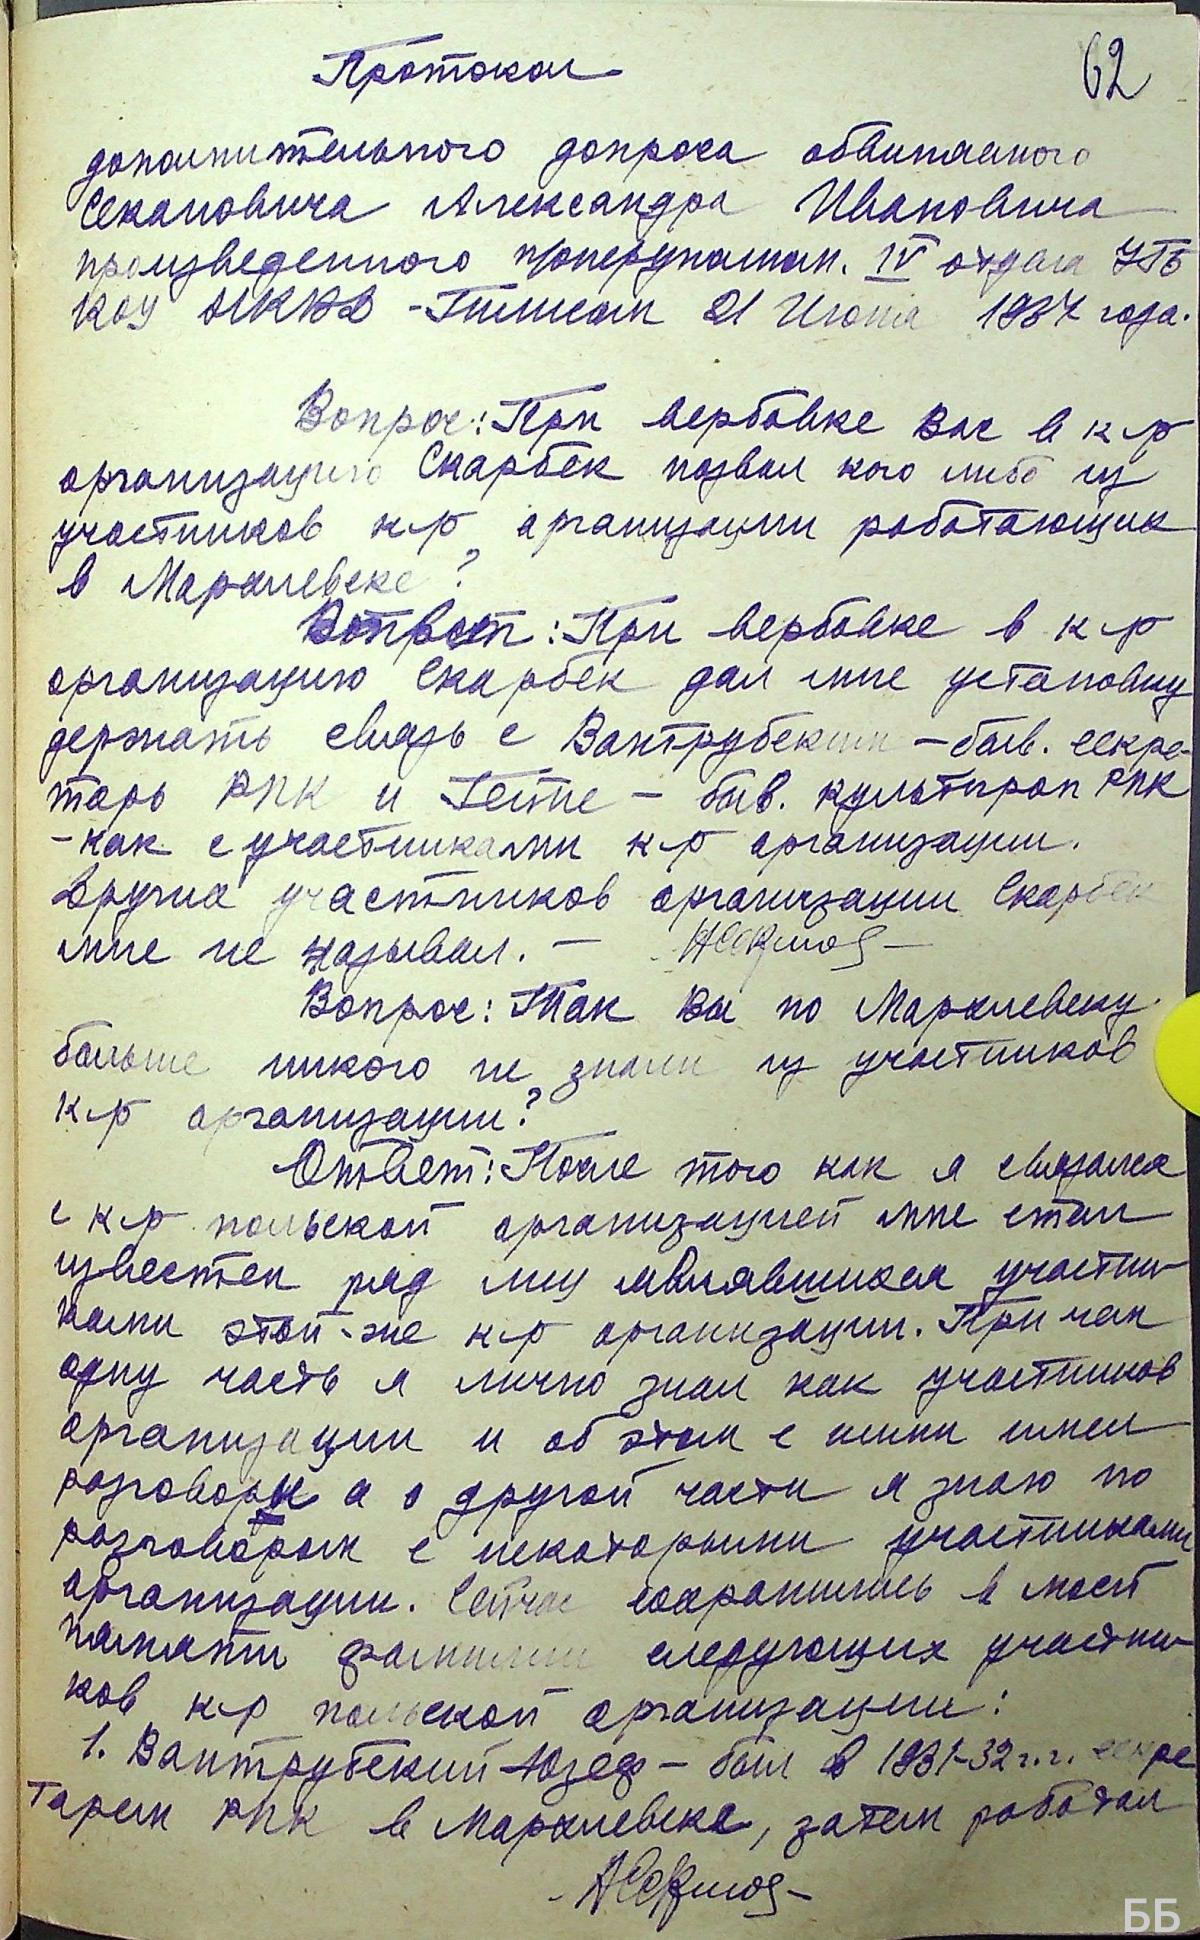 Протокол
62
дополнительного допроса обвиняемого
Секановича Александра Ивановича
произведенного IV отдела УГБ
КОУ НКВД 21 Июня 1937 года.
Вопрос: При вербовке Вас в к-р
организацию Скарбек назвал кого либо из
участников к-р организации работающих
в Мархлевске?
Ответ: При вербовке в к-р
организацию Скарбек дал мне установку
держать связь с Вантрубским - быв. секре-
тарь РПК и Гетне - быв. культпроп РПК
- как с участниками к-р организации.
Других участников организации Скарбек
мне не называл. -
Вопрос: Так Вы по Мархлевску
больше никого не знали из участников
к-р организации?
Ответ: После того как я связался
с к-р польской организацией мне стал
известен ряд лиц являвшихся участни-
ками этой-же к-р организации. При чем
одну часть я лично знал как участников
организации и об этом с ними имел
разговоры а о другой части я знаю по
разговорам с некоторыми участниками
организации. Сейчас сохранились в моей
памяти фамилии следующих участни-
ков к-р польской организации:
1. Вантрубский Юзеф - был в 1931-32 г.г. секре
тарем РПК в Мархлевске, затем работал
ББ